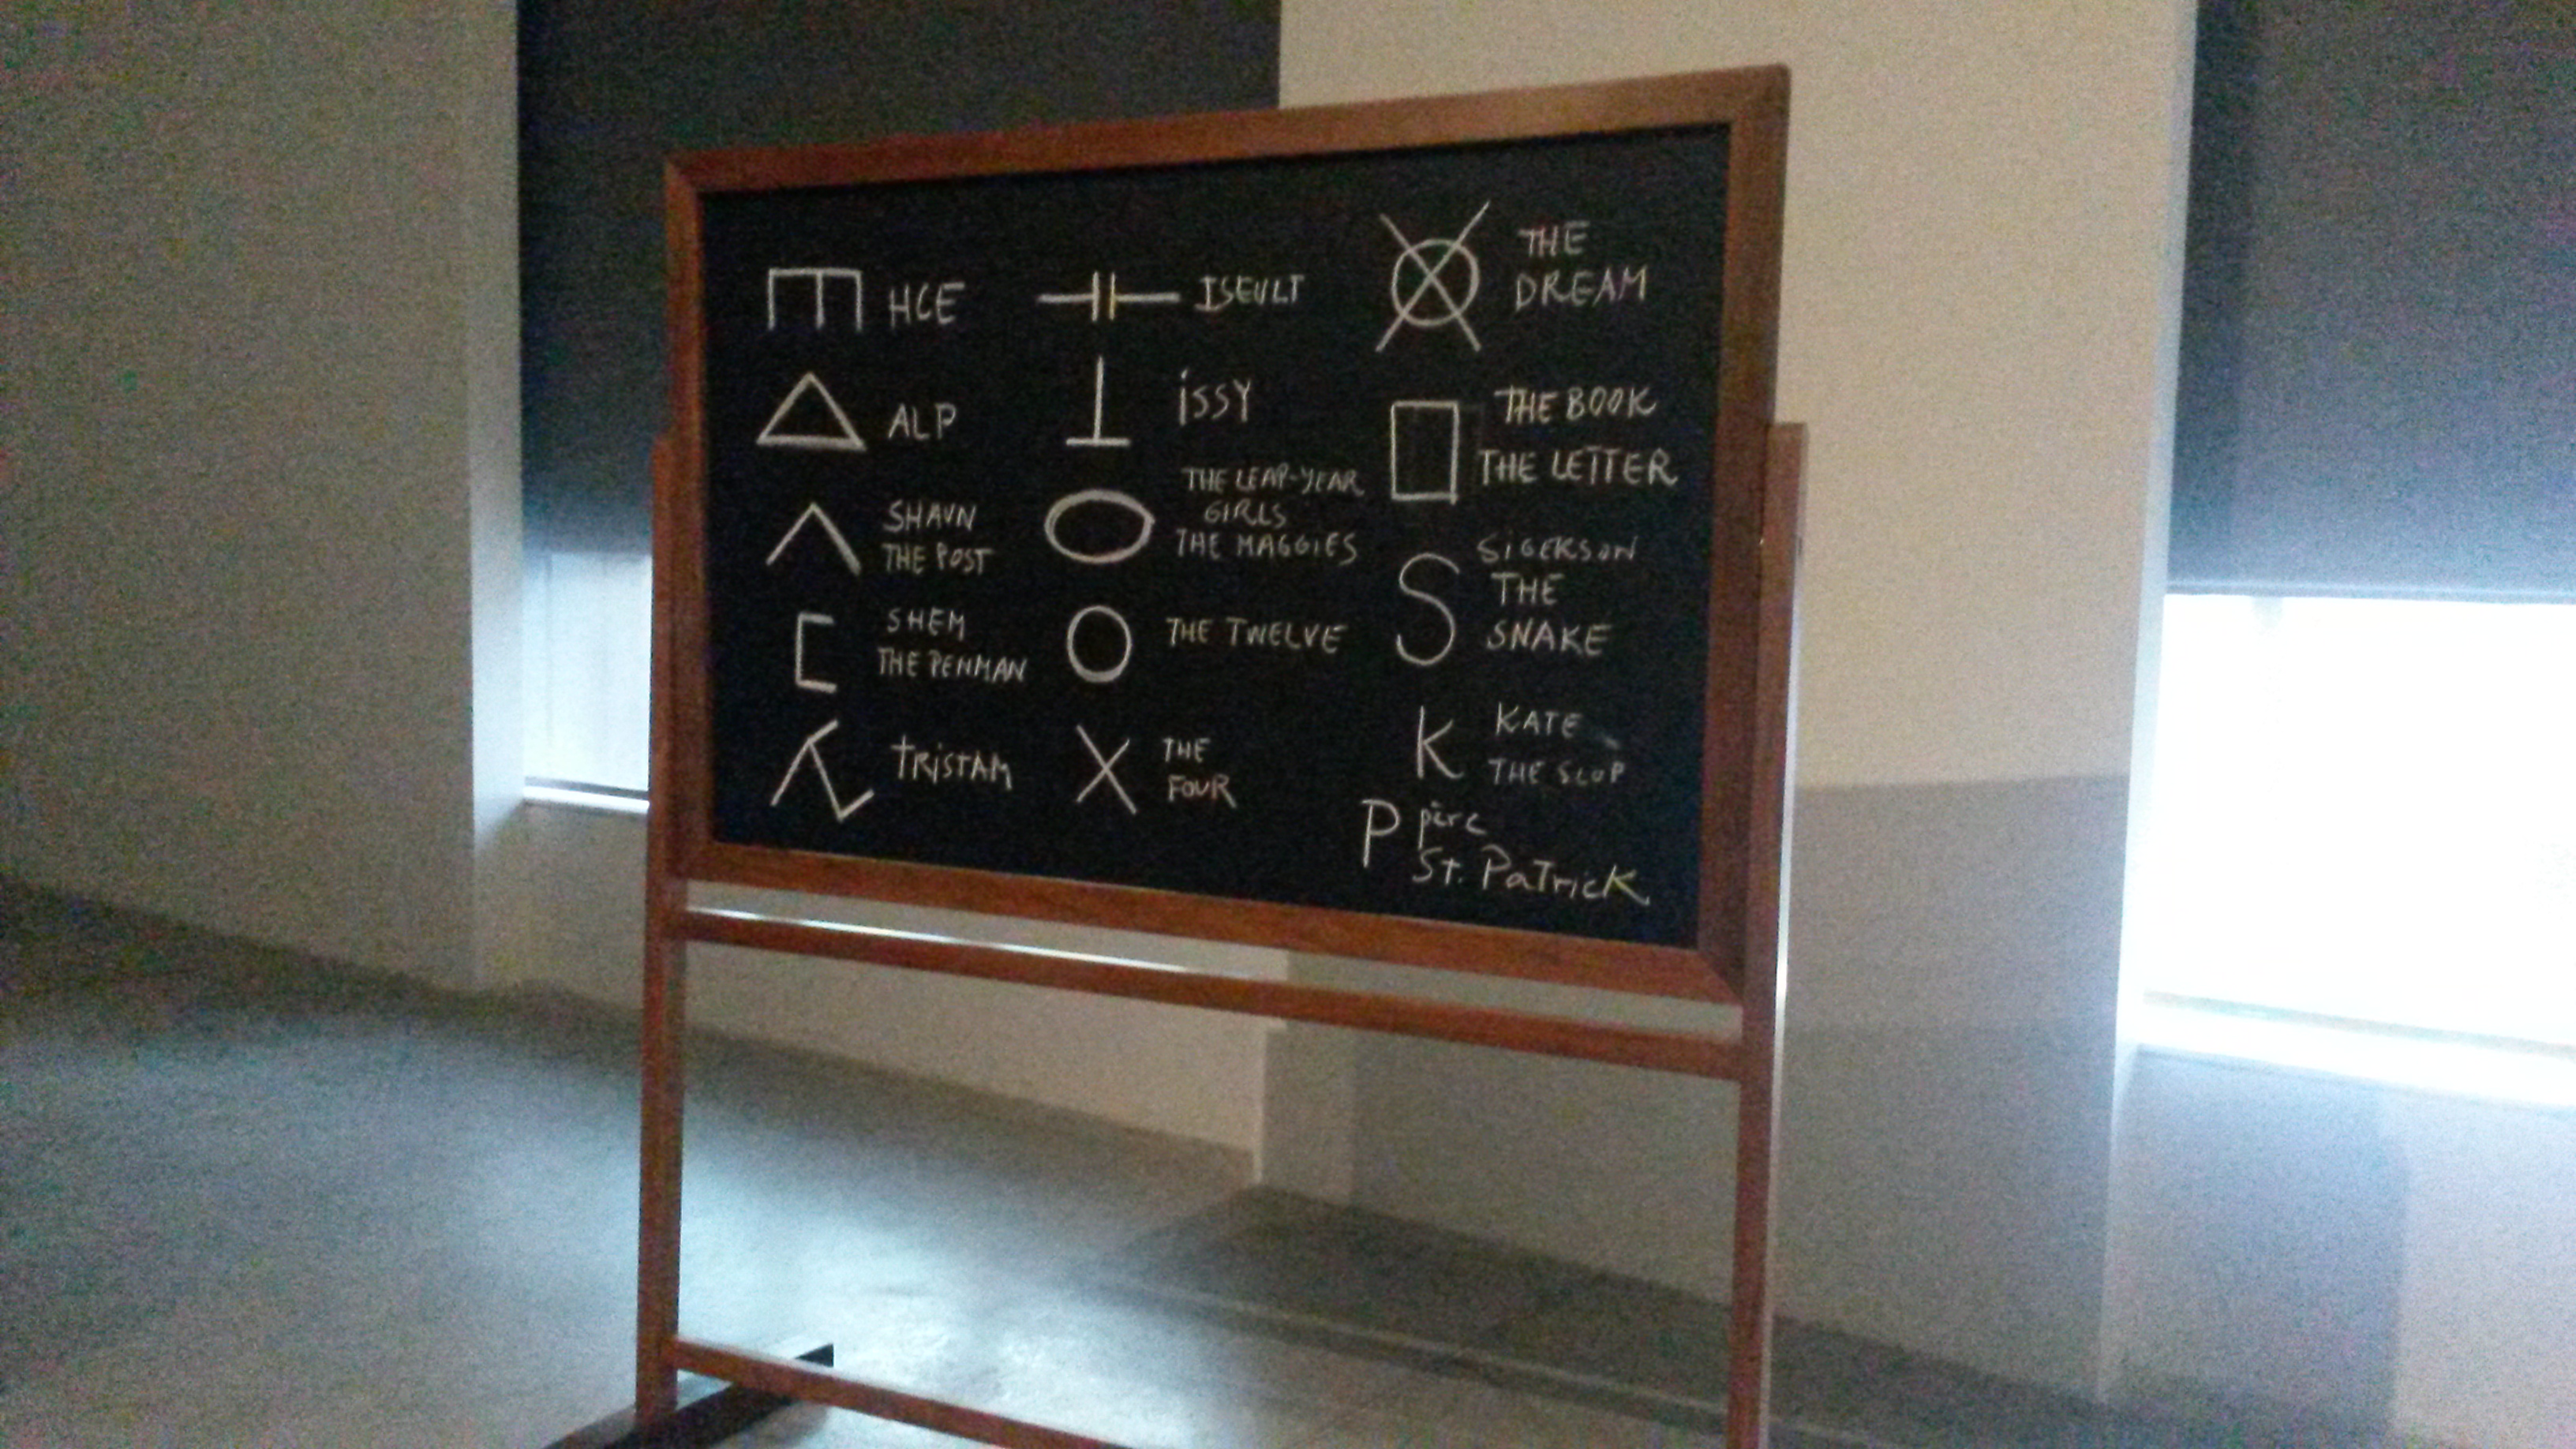 HCE
ALP
SHAUN
THE POST
SHEM
THE PENMAN
TRISTAM
ISEULT
ISSY
THE LEAP-YEAR
GIRLS
THE MAGGIES
THE TWELVE
X THE
FOUR
THE
DREAM
THE BOOK
THE LETTER
S SIGERSON
THE
SNAKE
K KATE
THE SLOP
P père
St. Patrick